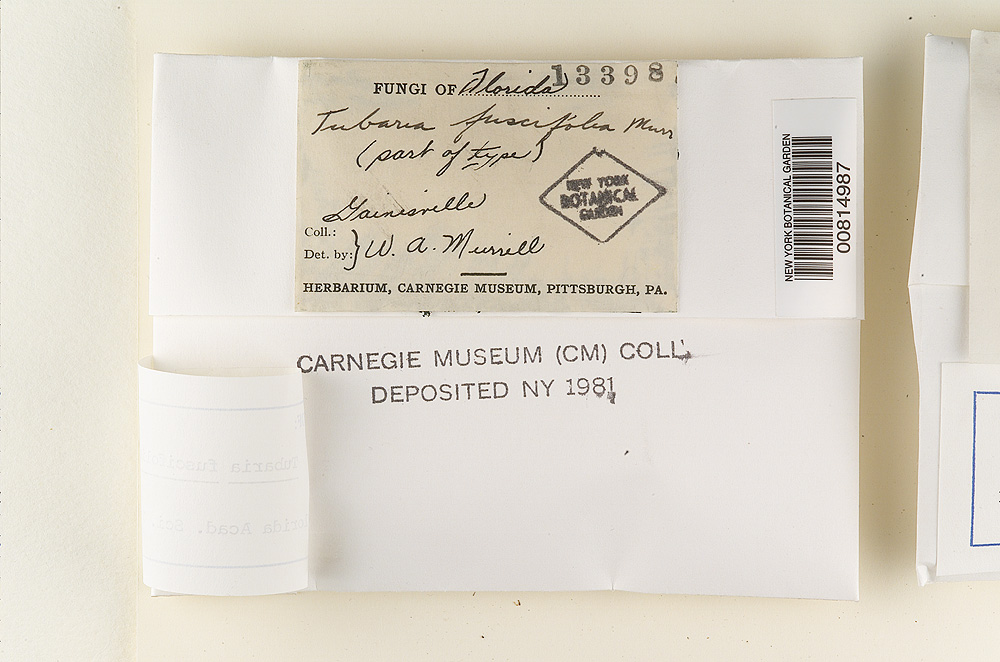 13398
FUNGI OF Florida
Tubaria fuscifolia Murr
(part of type)
NEW YORK
BOTANICAL
GARDEN
Gainesville
Coll.:
Det. by:} W. A. Murrill
HERBARIUM, CARNEGIE MUSEUM, PITTSBURGH, PA.
NEW YORK BOTANICAL GARDEN
00814987
CARNEGIE MUSEUM (CM) COLL.
DEPOSITED NY 1981
Tubaria fuscifo
orida Acad. Sci.